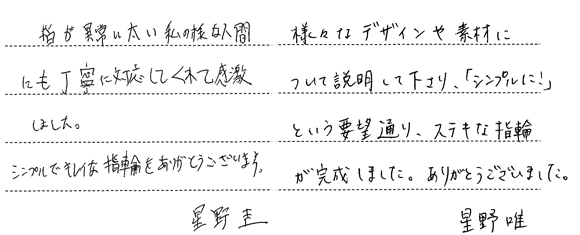 指が異常に太い私の様な人間
にも丁寧に対応してくれて感激
しました。
シンプルでキレイな指輪をありがとうございます。
星野 圭
様々なデザインや素材に
ついて説明して下さり、「シンプルに！」
という要望通り、ステキな指輪
が完成しました。ありがとうございました。
星野 唯